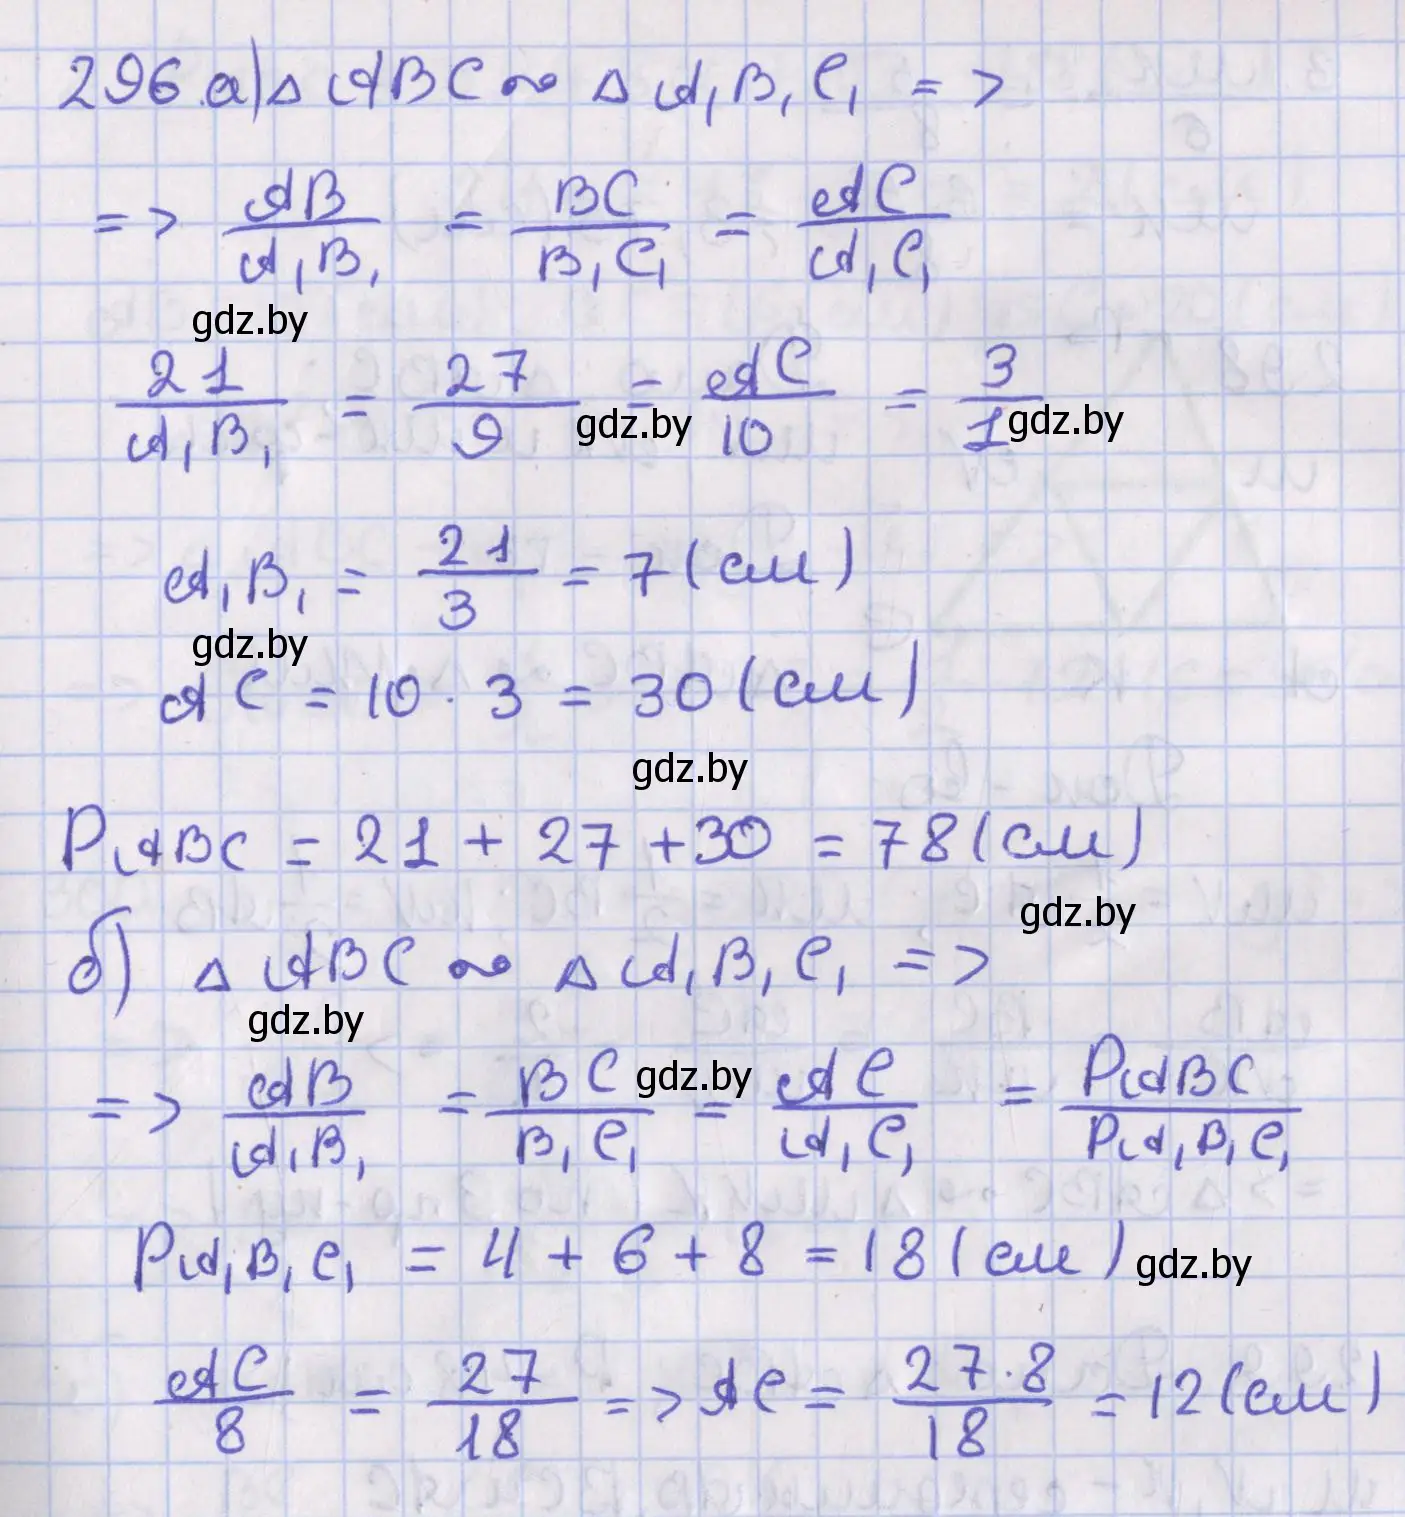 296.а) △ ABC ∾ △ A₁B₁C₁ =>
=> AB/A₁B₁ = BC/B₁C₁ = AC/A₁C₁
gdz.by
21/A₁B₁ = 27/9 = AC/10 = 3/1
gdz.by gdz.by
A₁B₁ = 21/3 = 7 (см)
gdz.by
AC = 10 · 3 = 30 (см)
gdz.by
P△ABC = 21 + 27 + 30 = 78 (см)
gdz.by
б) △ ABC ∾ △ A₁B₁C₁ =>
gdz.by
=> AB/A₁B₁ = BC/B₁C₁ = AC/A₁C₁ = PABC/PA₁B₁C₁
gdz.by
PA₁B₁C₁ = 4 + 6 + 8 = 18 (см)
gdz.by
AC/8 = 27/18 => AC = 27·8/18 = 12 (см)